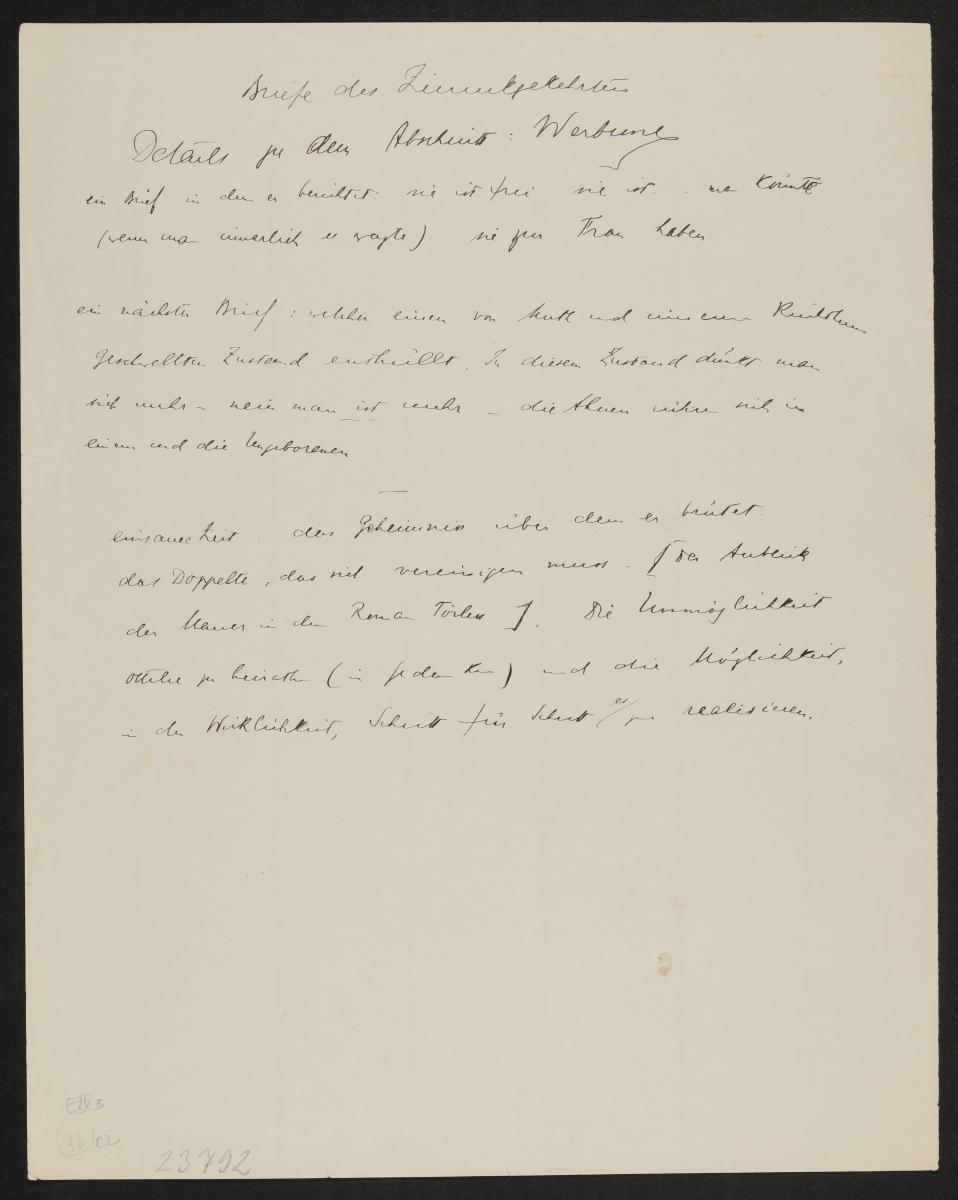 Briefe des Zurückgekehrten
Details zu dem Abschnitt: Werbung
ein Brief in dem er berichtet: sie ist frei sie ist .. man könnte
(wenn man innerlich es wagte) sie zur Frau haben.
ein nächster Brief: welcher einen von Muth und innerem Reichthum
geschwellten Zustand enthüllt. In diesem Zustand dünkt man
sich mehr – nein man ist mehr – die Ahnen rühren sich in
einem und die Ungeborenen
—
Einsamkeit: das Geheimniss über dem er brütet:
das Doppelte, das sich vereinigen muss. [der Anblick
der Mauer in dem Roman Törless]. Die Unmöglichkeit
Ottilie zu heirathen (in Gedanken) und die Möglichkeit,
in der Wirklichkeit, Schritt für Schritt es zu realisieren.
E IV B
36 02
23792